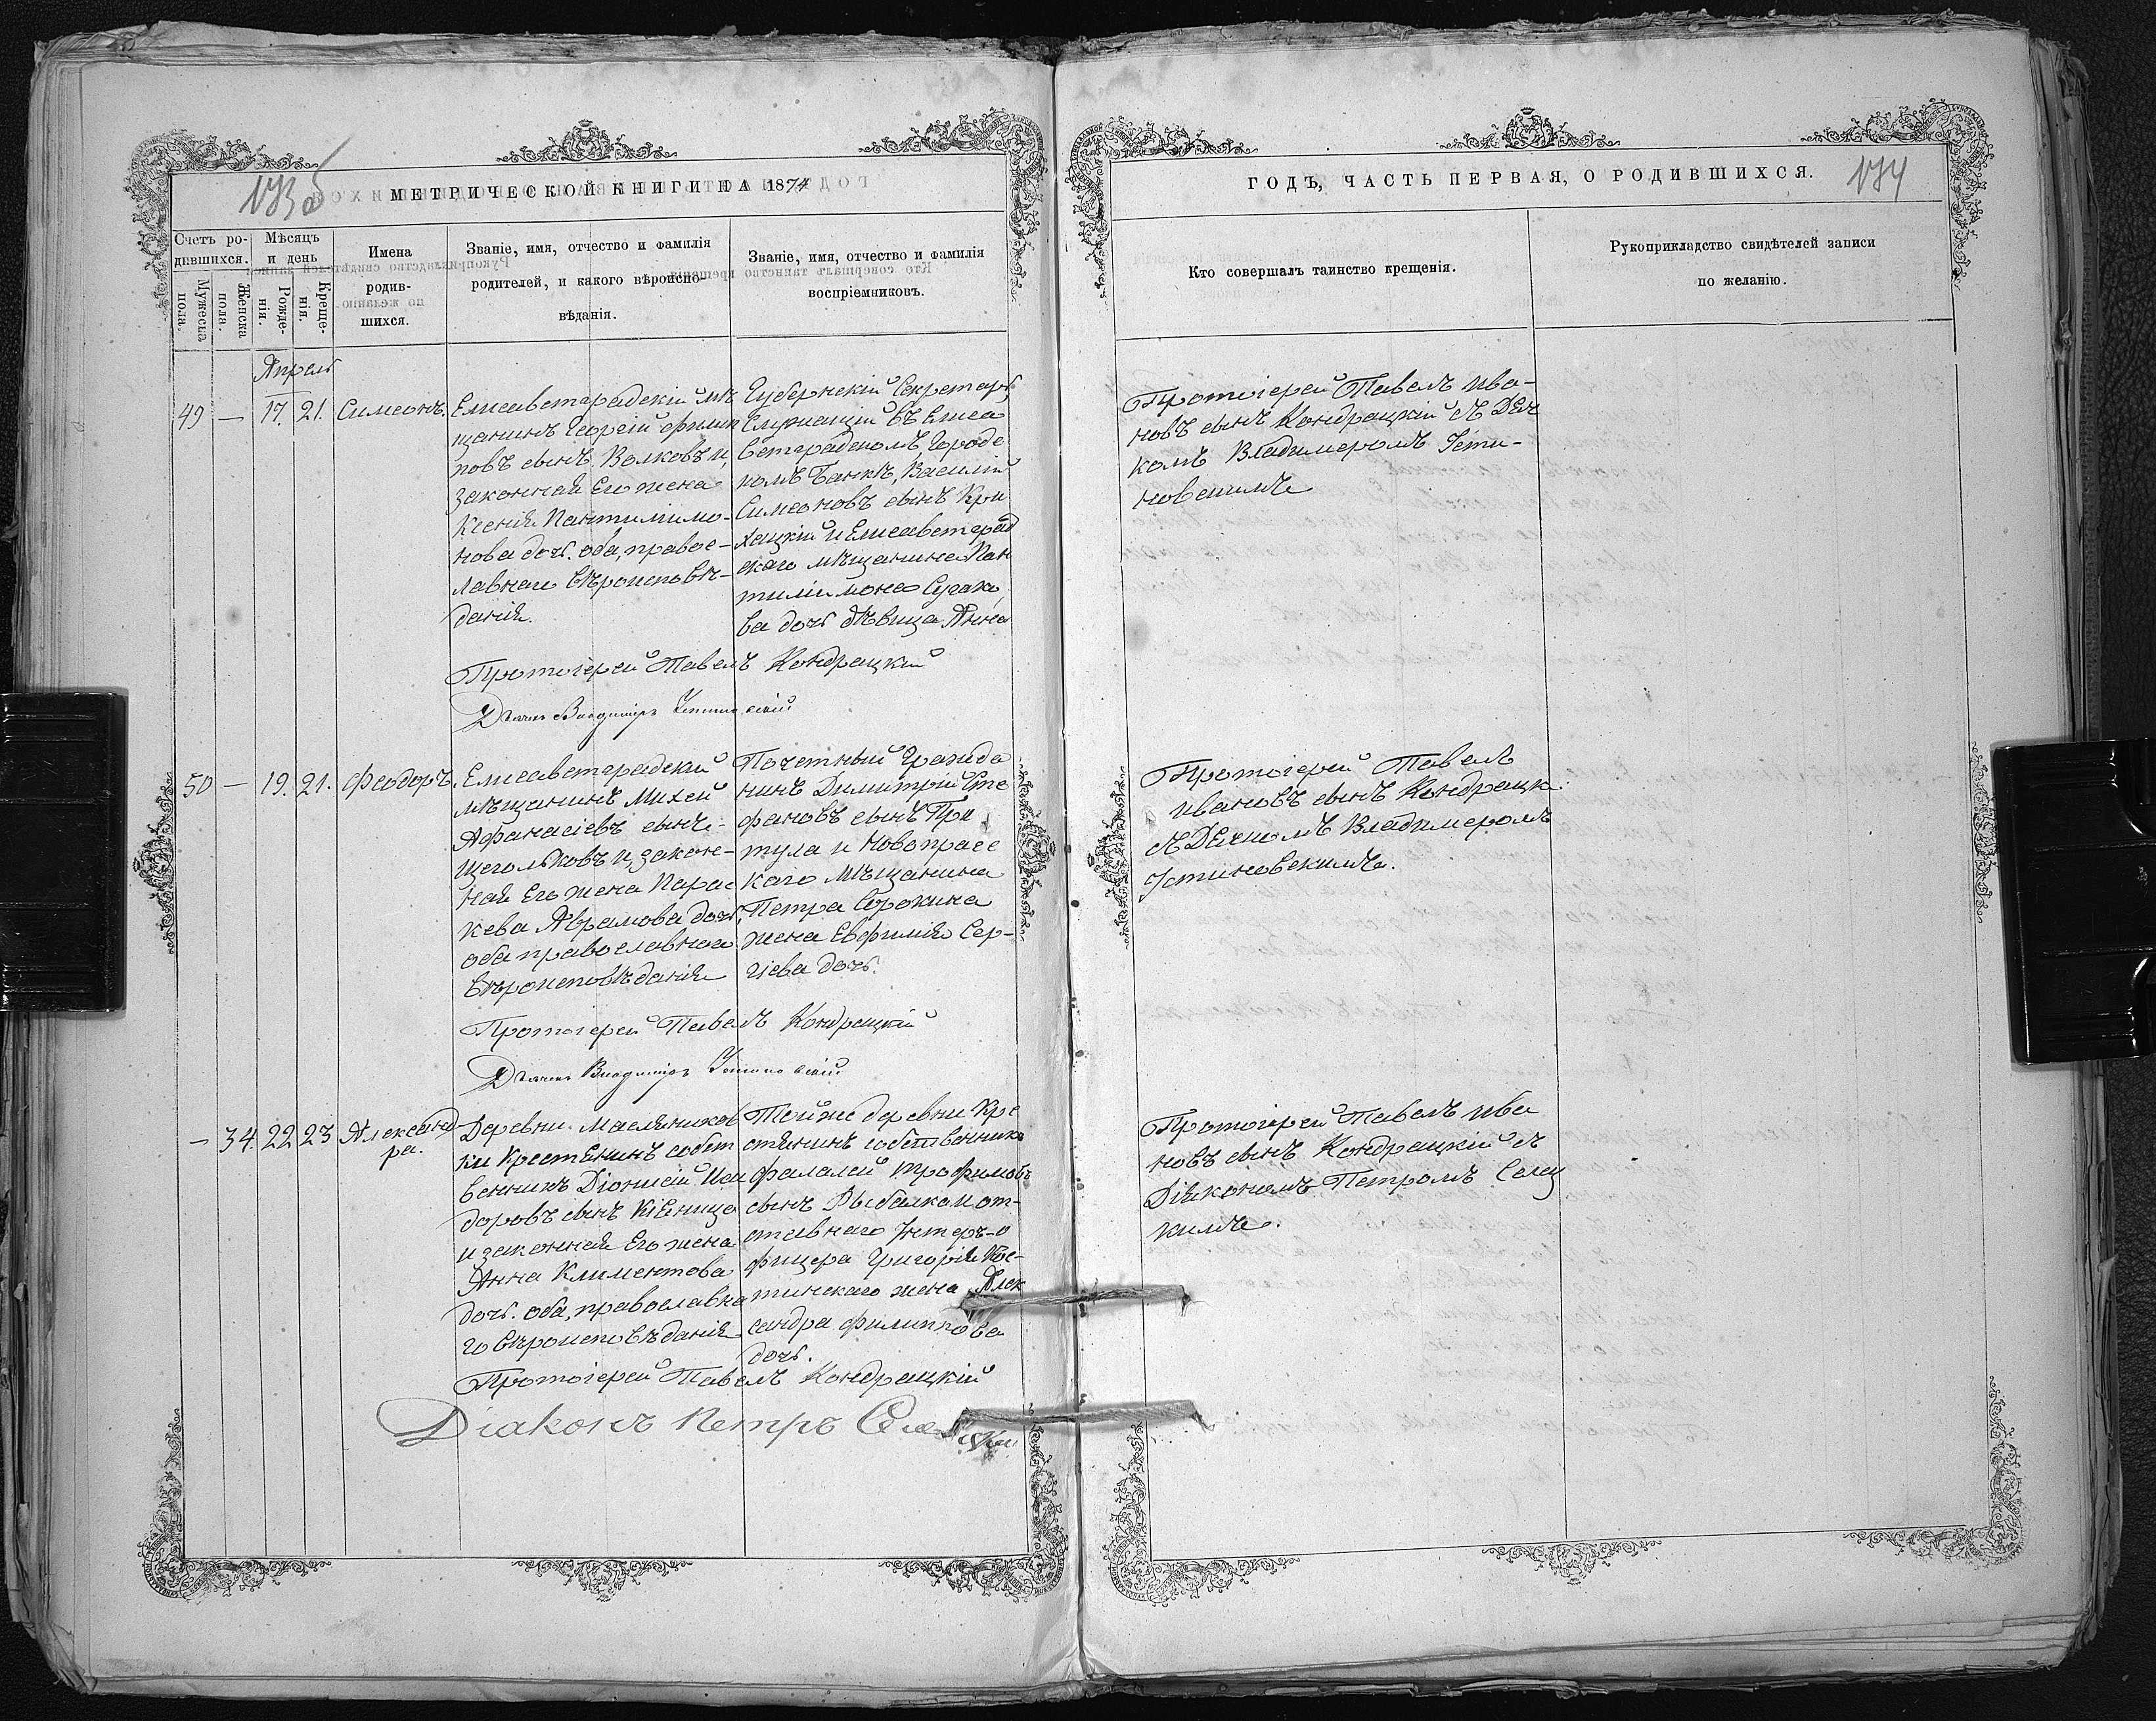 173 об
МЕТРИЧЕСКОЙ КНИГИ НА 1874
Счетъ ро-
дившихся.
Мужеска
пола.
Женска
пола.
Мѣсяцъ
и день
Рожде-
нія.
Креще-
нія.
Имена
родив-
шихся.
Званіе, имя, отчество и фамилія
родителей, и какого вѣроиспо-
вѣданія.
Званіе, имя, отчество и фамилія
воспріемниковъ.
Апрель
49 — 17. 21. Симеонъ.
Елисаветградскій мѣ
щанинъ Георгій Филип
повъ сынъ Волковъ и
законная Его жена
Ксенія Пантилимо-
нова дочь. оба, правос-
лавнаго вѣроисповѣ-
данія.
Губернскій Секретарь,
Служащій въ Елиса
ветградскомъ, Городс
комъ Банкѣ, Василій
Симеоновъ сынъ Кри
жацкій и Елисаветград
скаго мѣщанина Пан
тилимона Сугако,
ва дочь дѣвица Анна
Протоіерей Павелъ Кондрацкій
Дьячекъ Владиміръ Устиновскій
50 — 19. 21. Феодоръ.
Елисаветградскій
мѣщанинъ Михей
Афанасіевъ сынъ
Щегольковъ и, закон-
ная Его жена Парас
кева Аврамова дочь,
оба православнаго
вѣроисповѣданія
Почетный Гражда
нинъ Димитрій Сте
фановъ сынъ При
тула и Новопрагс
каго мѣщанина
Петра Сорокина
жена Евфимія Сер-
гіева дочь.
Протоіерей Павелъ Кондрацкій
Дьячекъ Владиміръ Устиновскій
— 34. 22 23 Александ
ра.
Деревни Масляников
ки Крестьянинъ собст
венникъ Діонисій Иси
доровъ сынъ Кіяница
и законная Его жена
Анна Климентова
дочь. оба, православна
го вѣроисповѣданія
Тойже деревни Кре
стьянинъ собственникъ
Фалалей Трофимовъ
сынъ Рыбалка и от-
ставнаго Унтеръ-о
фицера Григорія Кос-
тинскаго жена Алек
сандра Филиппова
дочь.
Протоіерей Павелъ Кондрацкій
Діаконъ Петръ
ГОДЪ, ЧАСТЬ ПЕРВАЯ, О РОДИВШИХСЯ.
174
Кто совершалъ таинство крещенія.
Рукоприкладство свидѣтелей записи
по желанію.
Протоіерей Павелъ Ива-
новъ сынъ Кондрацкій съ Дяч
комъ Владимеромъ Усти-
новскимъ
Протоіерей Павелъ
Ивановъ сынъ Кондрацк.
съ Дячкомъ Владимеромъ
Устиновскимъ.
Протоіерей Павелъ Ива
новъ сынъ Кондрацкій съ
Діякономъ Петромъ Селец
кимъ.